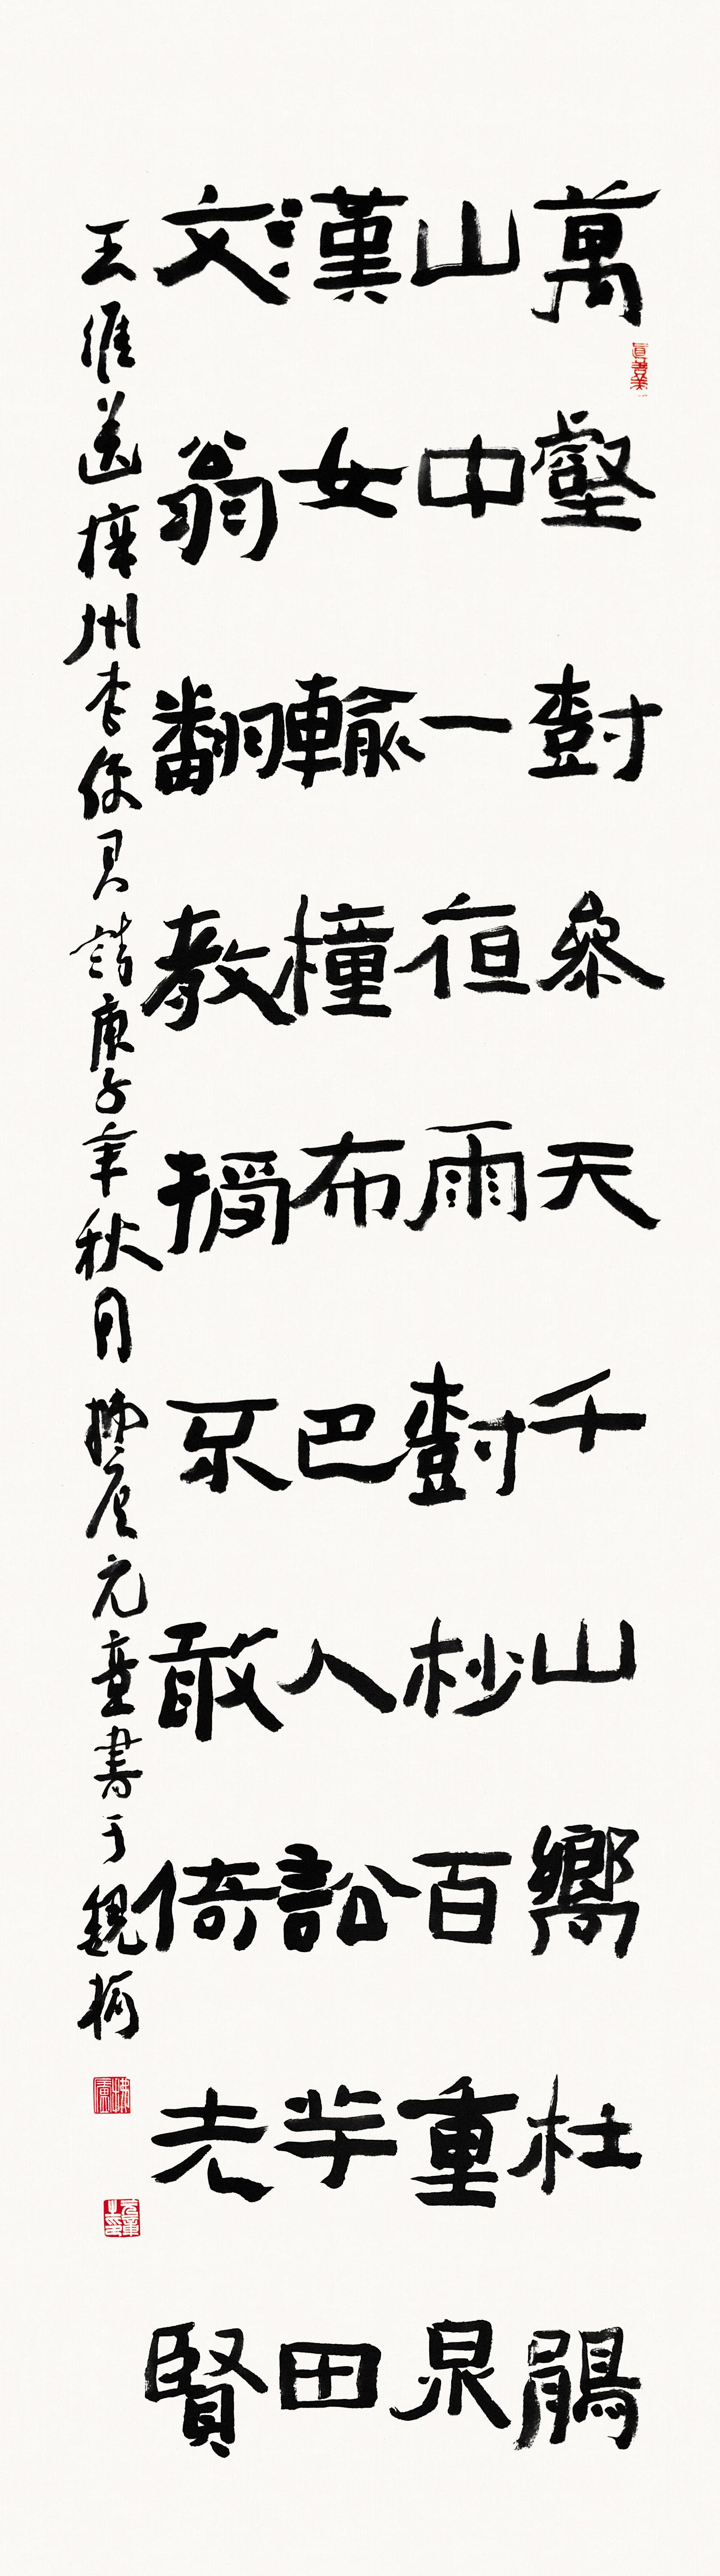 萬壑樹參天千山響杜鵑
山中一夜雨樹杪百重泉
漢女輸橦布巴人訟芋田
文翁翻教授不敢倚先賢
王維送梓州李使君詩庚子年秋月 元童書于
真善美